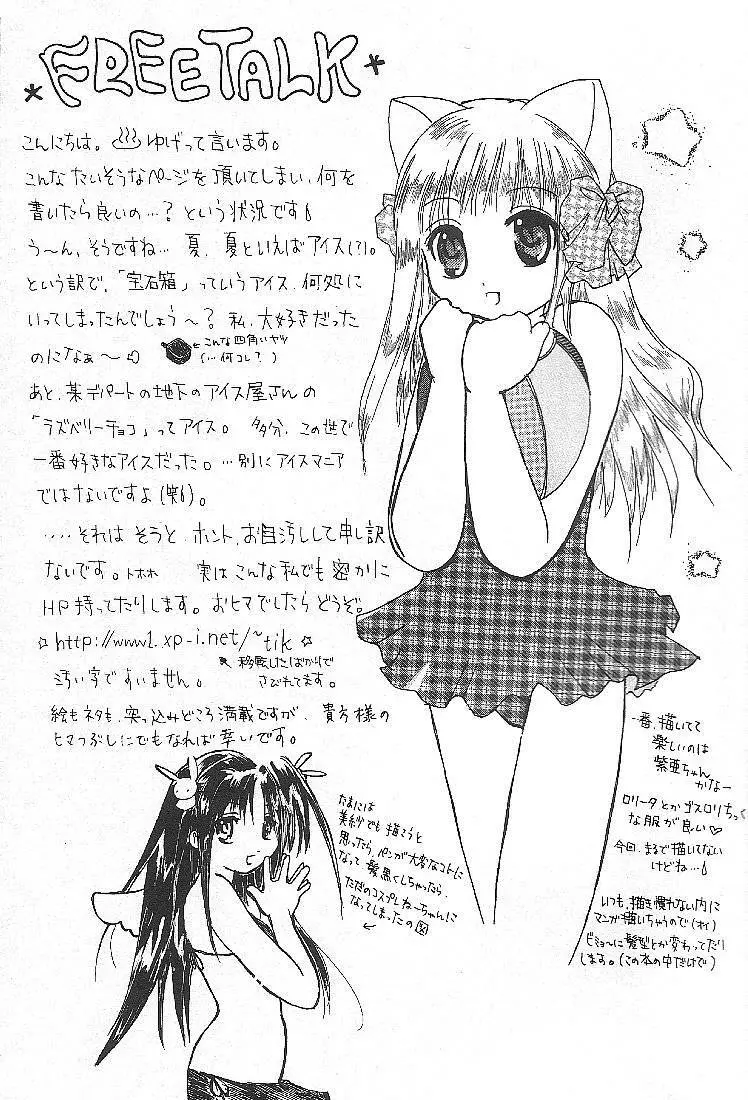 FREE TALK
こんにちは。♨ゆげって言います。
こんなたいそうなページを頂いてしまい、何を
書いたら良いの…？という状況です
う〜ん、そうですね… 夏、夏といえばアイス(?)。
という訳で、「宝石箱」っていうアイス、何処に
いってしまったんでしょう〜？私、大好きだった
のになぁ〜
←こんな四角いヤツ
(…何コレ？)
あと、某デパートの地下のアイス屋さんの
「ラズベリーチョコ」ってアイス。多分、この世で
一番好きなアイスだった。…別にアイスマニア
ではないですよ(笑)。
‥‥それはそうと、ホント、お目汚しして申し訳
ないです。トホホ 実はこんな私でも密かに
HP持ってたりします。おヒマでしたらどうぞ。
☆http://www1.xp-i.net/~tik☆
移転したばかりで
さびれてます。
汚い字ですいません。
絵もネタも、突っ込みどころ満載ですが、貴方様の
ヒマつぶしにでもなれば幸いです。
一番、描いてて
楽しいのは
紫亜ちゃん
かなー
ロリータとかゴスロリちっく
な服が良い♡
今回、まるで描いてない
けどね…
いつも、描き慣れない内に
マンガ描いちゃうので(オイ)
ビミョ〜に髪型とか変わってたり
します。(この本の中だけで)
たまには
美紗でも描こうと
思ったら、ペンが大変なコトに
なって、髪黒くしちゃったら、
ただのコスプレねーちゃんに
なってしまったの図